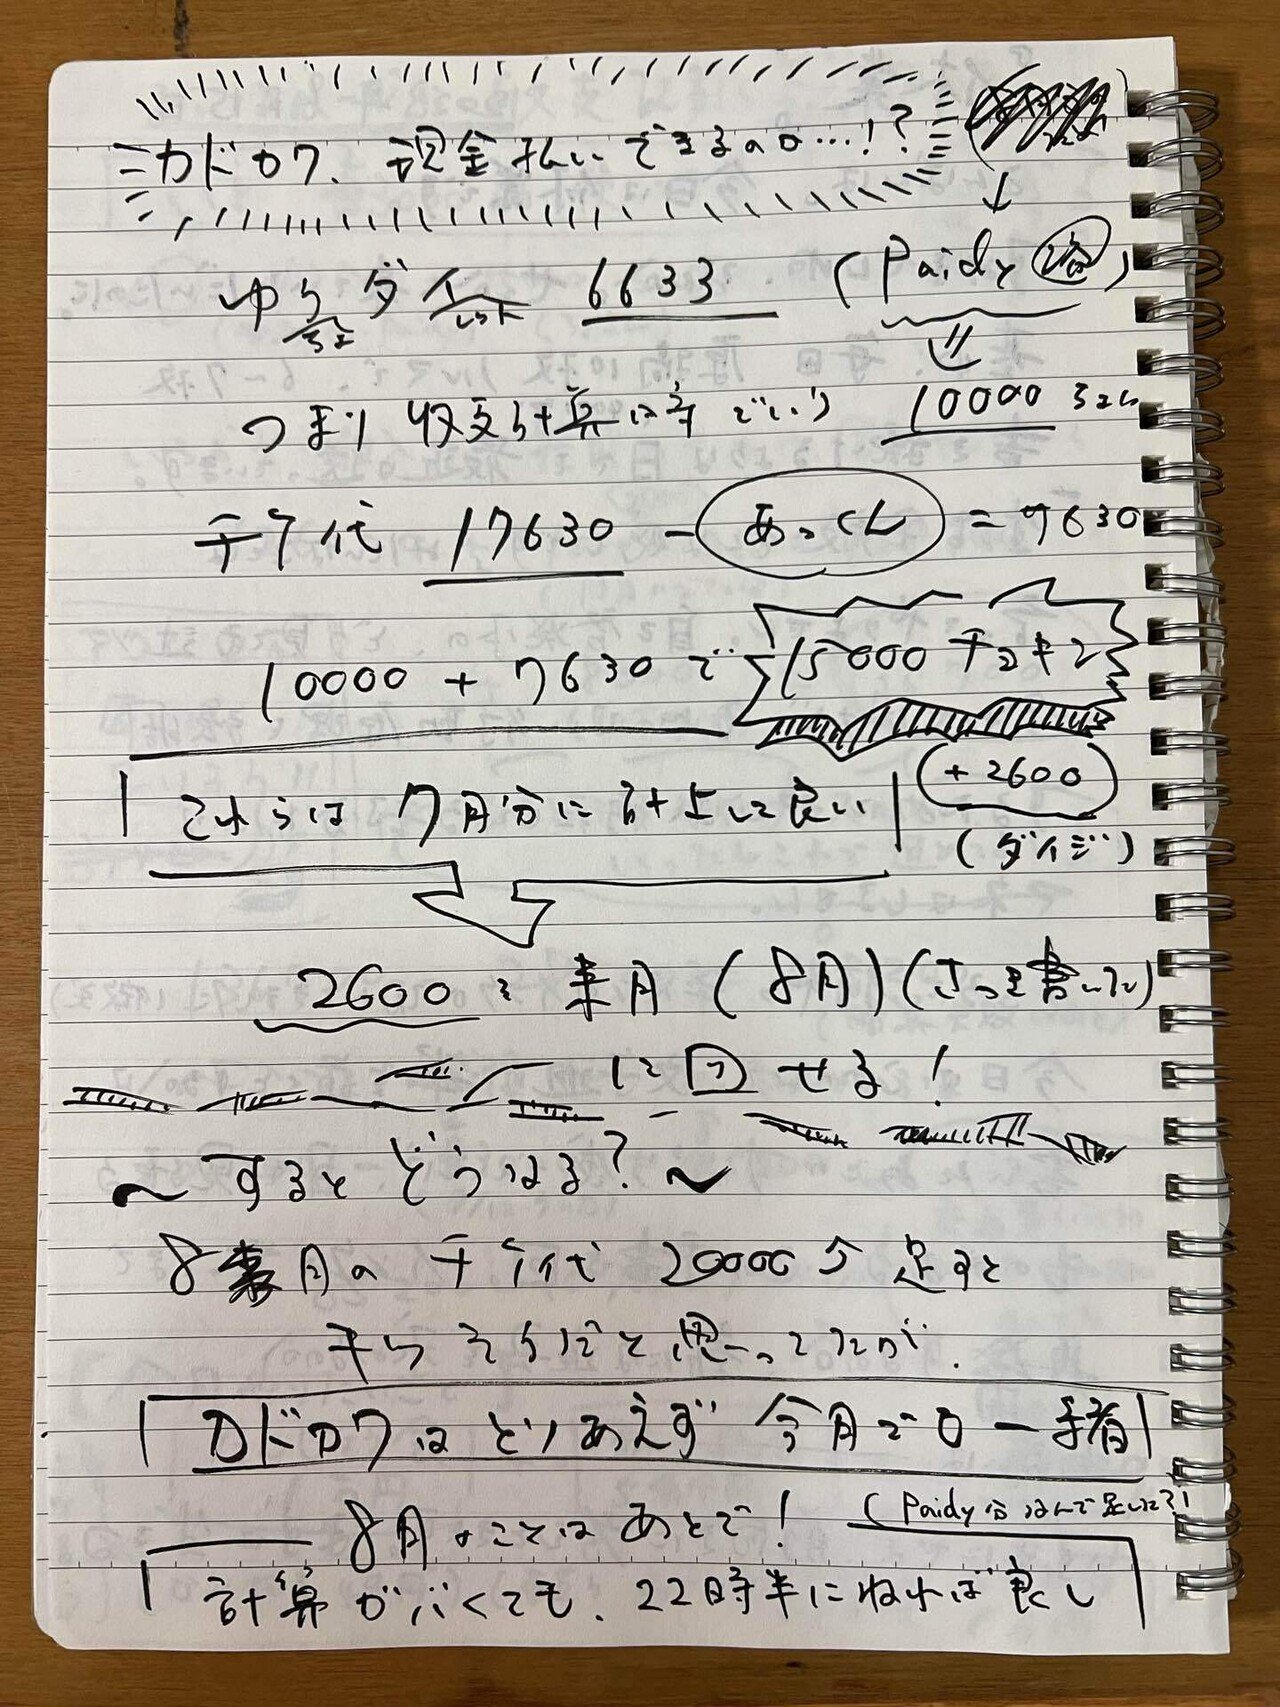 カドカワ、現金払いできるのロ…!?
ゆうダイ 6633 (Paidy ㊙)
ちょ レクト
つまり 収支計算に幸でいう 10000 ちょい
チケ代 17630 - あっくん = 7630
10000 + 7630 で 15000 チョキン
これらは 7月分に計上して良い
+2600
(ダイジ)
2600を 来月 (8月) (さっき書いてた)
に回せる!
〜するとどうなる?〜
8月の チケ代 20000分 足すと
チケ そうだと思ってたが、
カドカワはとりあえず 今月でロー緒
8月のことは あとで!
(Paidy分 なんで足した?!
計算がバくても、22時半にねれば良し